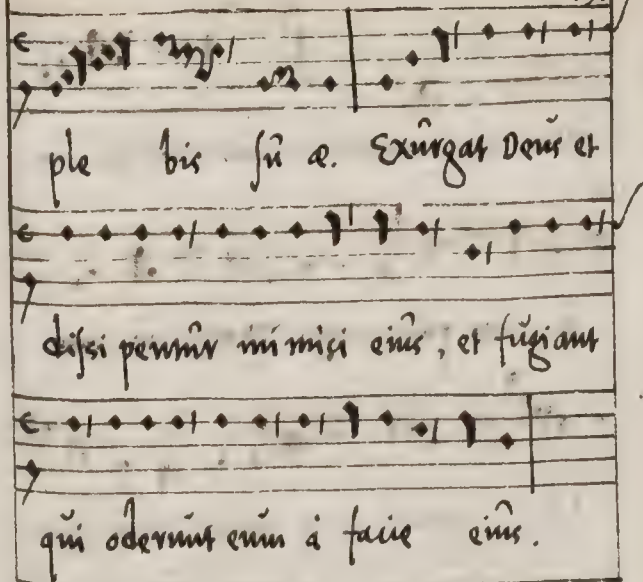 ple bis suæ. Exurgat Deus et
dissipentur inimici eius, et fugiant
qui oderunt eum à facie eius.